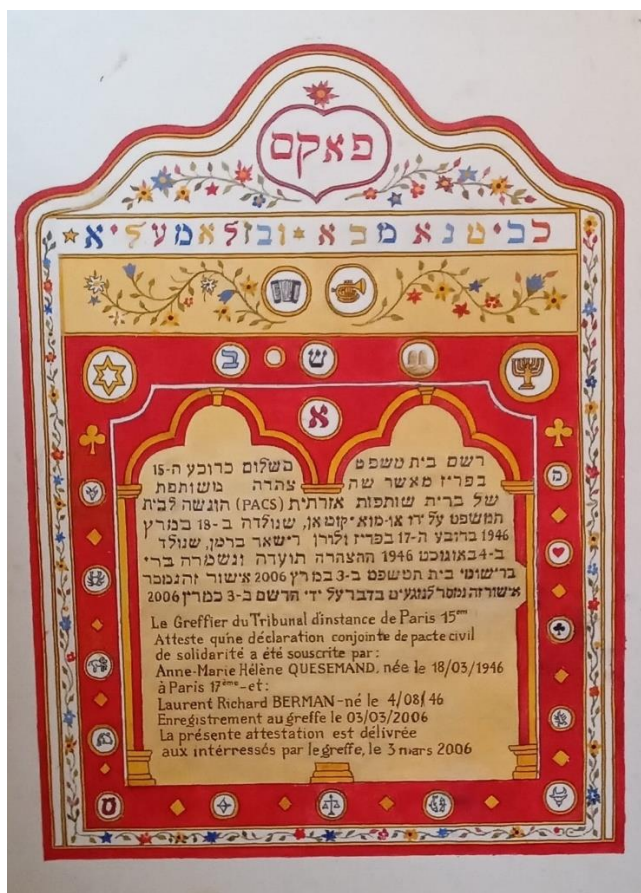 פאקס
כביטנא מבא * ובזלאמעליא *
ב ש
א
רשם בית משפט השלום ברובע ה-15
בפריז מאשר שה צהרה משותפת
של ברית שותפות אזרתית (PACS) הוגשה לבית
המשפט על ידי או-מוא קזמאן, שנולדה ב-18 במרץ
1946 ברובע ה-17 בפריז ולורן רישאר ברמן, שנולד
ב-4 באוגוסט 1946 ההצהרה תועדה ונשמרה ברי
ברישומי בית המשפט ב-3 במרץ 2006 אישור זה נמסר
אישור זה נמסר לנוגעים בדבר על ידי הרשם ב-3 במרץ 2006
Le Greffier du Tribunal d'instance de Paris 15ème
Atteste qu'ne déclaration conjointe de pacte civil
de solidarité a été souscrite par:
Anne-Marie Hélène QUESEMAND, née le 18/03/1946
à Paris 17ème - et:
Laurent Richard BERMAN - né le 4/08/46
Enregistrement au greffe le 03/03/2006
La présente attestation est délivrée
aux intérressés par le greffe, le 3 mars 2006